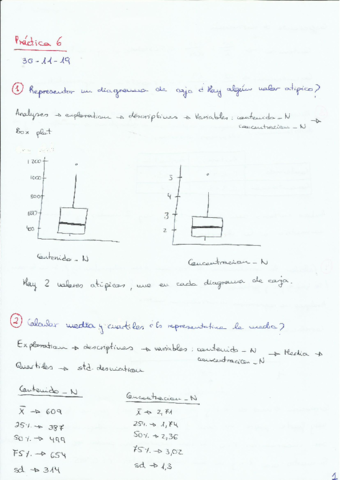 Práctica 6
30-11-19
① Representar un diagrama de caja ¿Hay algún valor atípico?
Analyses → exploration → descriptives → variables: contenido_N →
concentracion_N
Box plot
1200
1000
800
600
400
Contenido_N
5
4
3
2
Concentracion_N
Hay 2 valores atípicos, uno en cada diagrama de caja.
② Calcular media y cuartiles ¿Es representativa la media?
Exploration → descriptives → variables: contenido_N → Media →
concentracion_N
Quartiles → std. desviation
Contenido_N
Concentracion_N
x̄ → 609
x̄ → 2,71
25% → 387
25% → 1,74
50% → 499
50% → 2,36
75% → 654
75% → 3,02
sd → 314
sd → 1,3
1